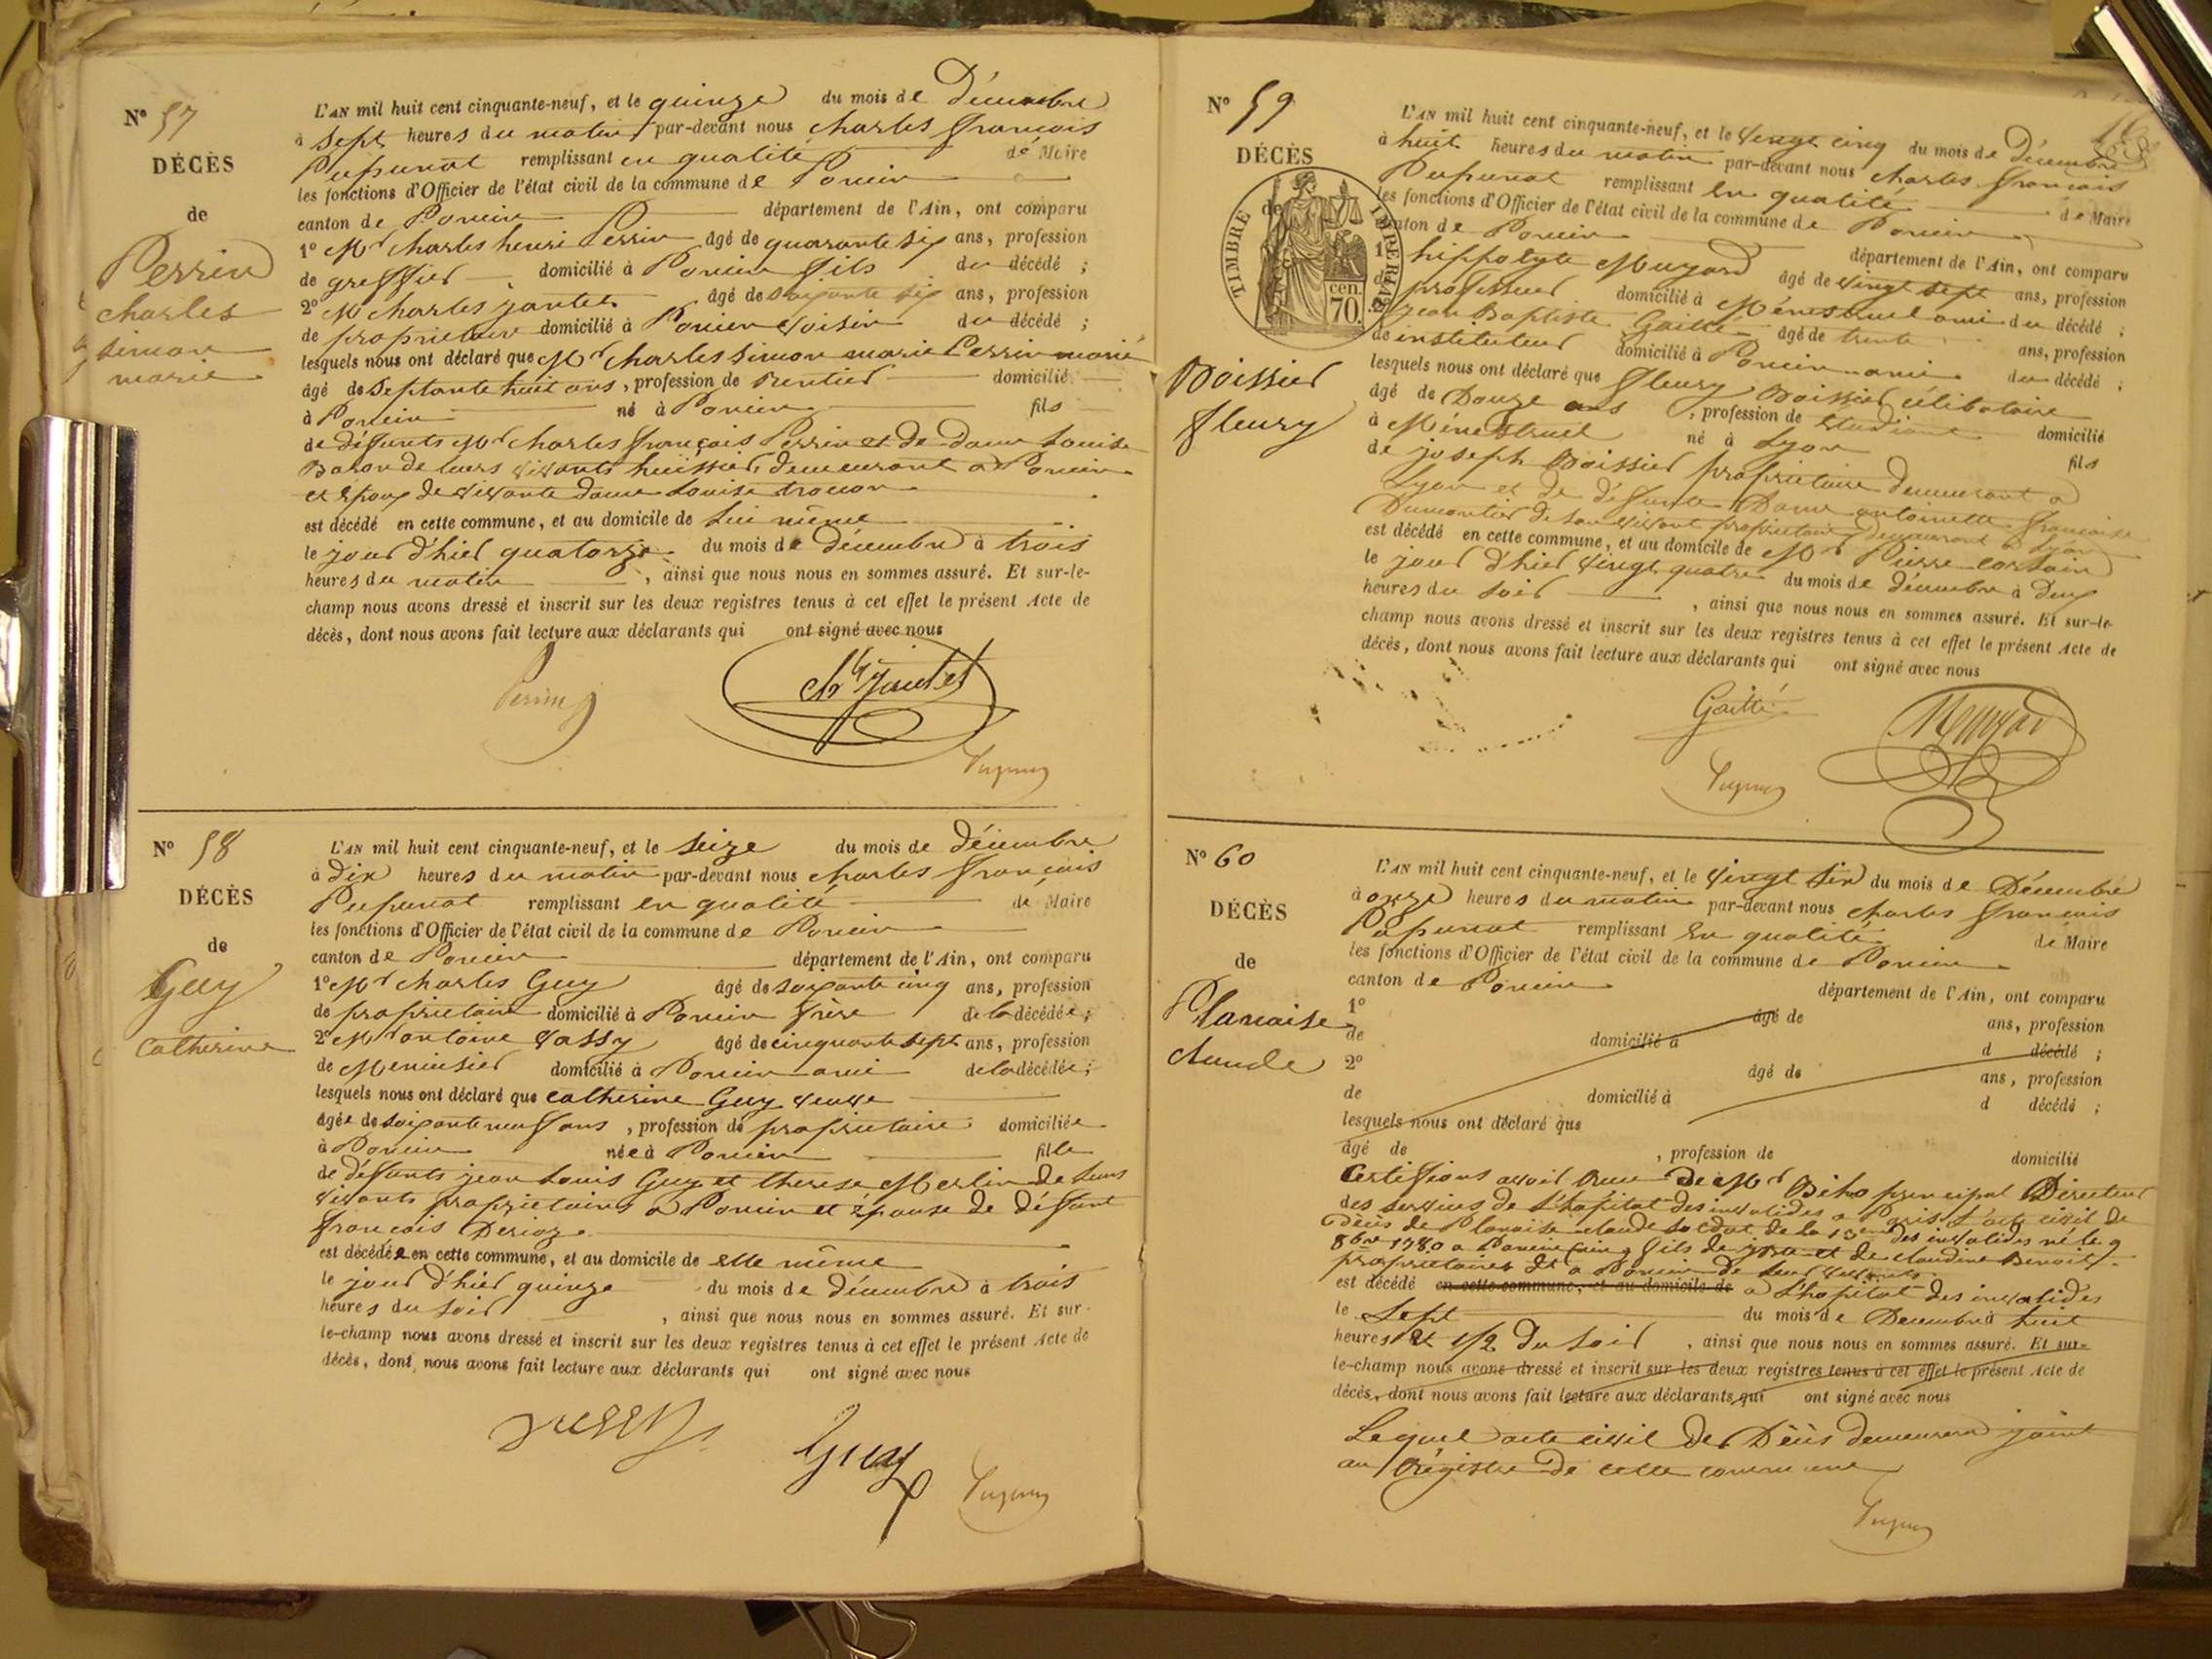 N° 57
DÉCÈS
de
Perrin
charles
simon
marie
L'AN mil huit cent cinquante-neuf, et le quinze du mois de Décembre
à sept heures du matin par-devant nous charles françois
Pupunat remplissant en qualité de Maire
les fonctions d'Officier de l'état civil de la commune de Poncin
canton de Poncin département de l'Ain, ont comparu
1° Mr charles henri Perrin âgé de quarante six ans, profession
de greffier domicilié à Poncin fils du décédé ;
2° Mr charles jantet âgé de soixante six ans, profession
de propriétaire domicilié à Poncin voisin du décédé ;
lesquels nous ont déclaré que Mr charles simon marie Perrin marié
âgé de septante huit ans, profession de rentier domicilié
à Poncin né à Poncin fils
de défunts Mr charles françois Perrin et de dame Louise
de leurs vivants huissier demeurant à Poncin
et époux de vivante dame Louise
est décédé en cette commune, et au domicile de lui même
le jour d'hier quatorze du mois de décembre à trois
heures du matin, ainsi que nous nous en sommes assuré. Et sur-le-
champ nous avons dressé et inscrit sur les deux registres tenus à cet effet le présent Acte de
décès, dont nous avons fait lecture aux déclarants qui ont signé avec nous
Perrin
Jantet
N° 58
DÉCÈS
de
Guy
Catherine
L'AN mil huit cent cinquante-neuf, et le seize du mois de décembre
à dix heures du matin par-devant nous charles françois
Pupunat remplissant en qualité de Maire
les fonctions d'Officier de l'état civil de la commune de Poncin
canton de Poncin département de l'Ain, ont comparu
1° Mr charles Guy âgé de soixante cinq ans, profession
de propriétaire domicilié à Poncin frère de la décédée ;
2° Mr antoine Vassy âgé de cinquante sept ans, profession
de Menuisier domicilié à Poncin ami de la décédée ;
lesquels nous ont déclaré que catherine Guy veuve
âgée de soixante neuf ans, profession de propriétaire domiciliée
à Poncin née à Poncin fille
de défunts jean Louis Guy et therese Merlin de leurs
vivants propriétaires à Poncin et épouse de défunt
françois Derioz
est décédée en cette commune, et au domicile de elle même
le jour d'hier quinze du mois de décembre à trois
heures du soir, ainsi que nous nous en sommes assuré. Et sur-
le-champ nous avons dressé et inscrit sur les deux registres tenus à cet effet le présent Acte de
décès, dont nous avons fait lecture aux déclarants qui ont signé avec nous
Guy
N° 59
DÉCÈS
de
TIMBRE IMPERIAL
70 cen.
Boissier
fleury
L'AN mil huit cent cinquante-neuf, et le vingt cinq du mois de Décembre
à huit heures du matin par-devant nous charles françois
Pupunat remplissant en qualité de Maire
les fonctions d'Officier de l'état civil de la commune de Poncin
canton de Poncin département de l'Ain, ont comparu
1° hippolyte âgé de vingt sept ans, profession
de professeur domicilié à Ménestruel ami du décédé ;
2° jean Baptiste Gaitte âgé de trente ans, profession
de instituteur domicilié à Poncin ami du décédé ;
lesquels nous ont déclaré que fleury Boissier célibataire
âgé de Douze ans, profession de Etudiant domicilié
à Ménestruel né à Lyon fils
de joseph Boissier propriétaire demeurant à
Lyon et de défunte Dame antoinette françoise
Dumortier de son vivant propriétaire demeurant à Lyon
est décédé en cette commune, et au domicile de Mr Pierre
le jour d'hier vingt quatre du mois de décembre à deux
heures du soir, ainsi que nous nous en sommes assuré. Et sur-le-
champ nous avons dressé et inscrit sur les deux registres tenus à cet effet le présent Acte de
décès, dont nous avons fait lecture aux déclarants qui ont signé avec nous
Gaitte
N° 60
DÉCÈS
de
Planaise
claude
L'AN mil huit cent cinquante-neuf, et le vingt six du mois de Décembre
à onze heures du matin par-devant nous charles françois
Pupunat remplissant en qualité de Maire
les fonctions d'Officier de l'état civil de la commune de Poncin
canton de Poncin département de l'Ain, ont comparu
1° âgé de ans, profession
de domicilié à d décédé ;
2° âgé de ans, profession
de domicilié à d décédé ;
lesquels nous ont déclaré que
âgé de , profession de domicilié
Certifions avoir Reçu De Mr principal Directeur
des services de l'hopital des invalides à Paris l'acte civil de
Décès de Planaise claude soldat de la 13eme des invalides né le 9
8bre 1780 à Poncin (ain) fils de et de claudine Benoit
propriétaires à Poncin de leur vivants
est décédé en cette commune, et au domicile de à l'hopital des invalides
le sept du mois de Décembre à huit
heures et 1/2 Du soir, ainsi que nous nous en sommes assuré. Et sur-
le-champ nous avons dressé et inscrit sur les deux registres tenus à cet effet le présent Acte de
décès, dont nous avons fait lecture aux déclarants qui ont signé avec nous
Lequel acte civil de Décès demeurera joint
au Régistre de cette commune